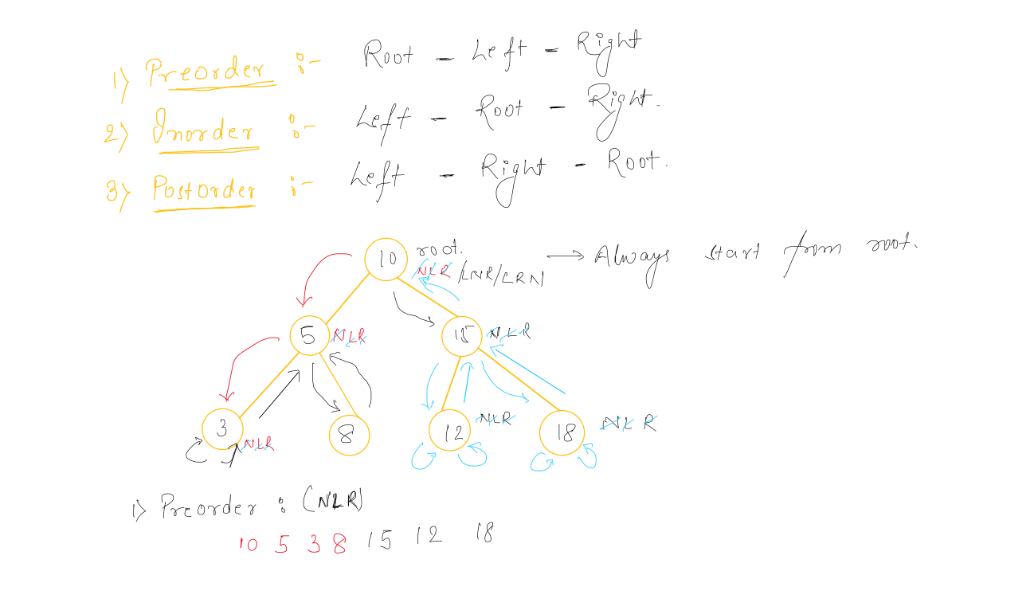 1) Preorder :- Root - Left - Right
2) Inorder :- Left - Root - Right.
3) Postorder :- Left - Right - Root.
root.
10 NLR/LNR/LRN → Always start from root.
5 NLR 15 NLR
3 NLR 8 12 NLR 18 NLR
1) Preorder : (NLR)
10 5 3 8 15 12 18